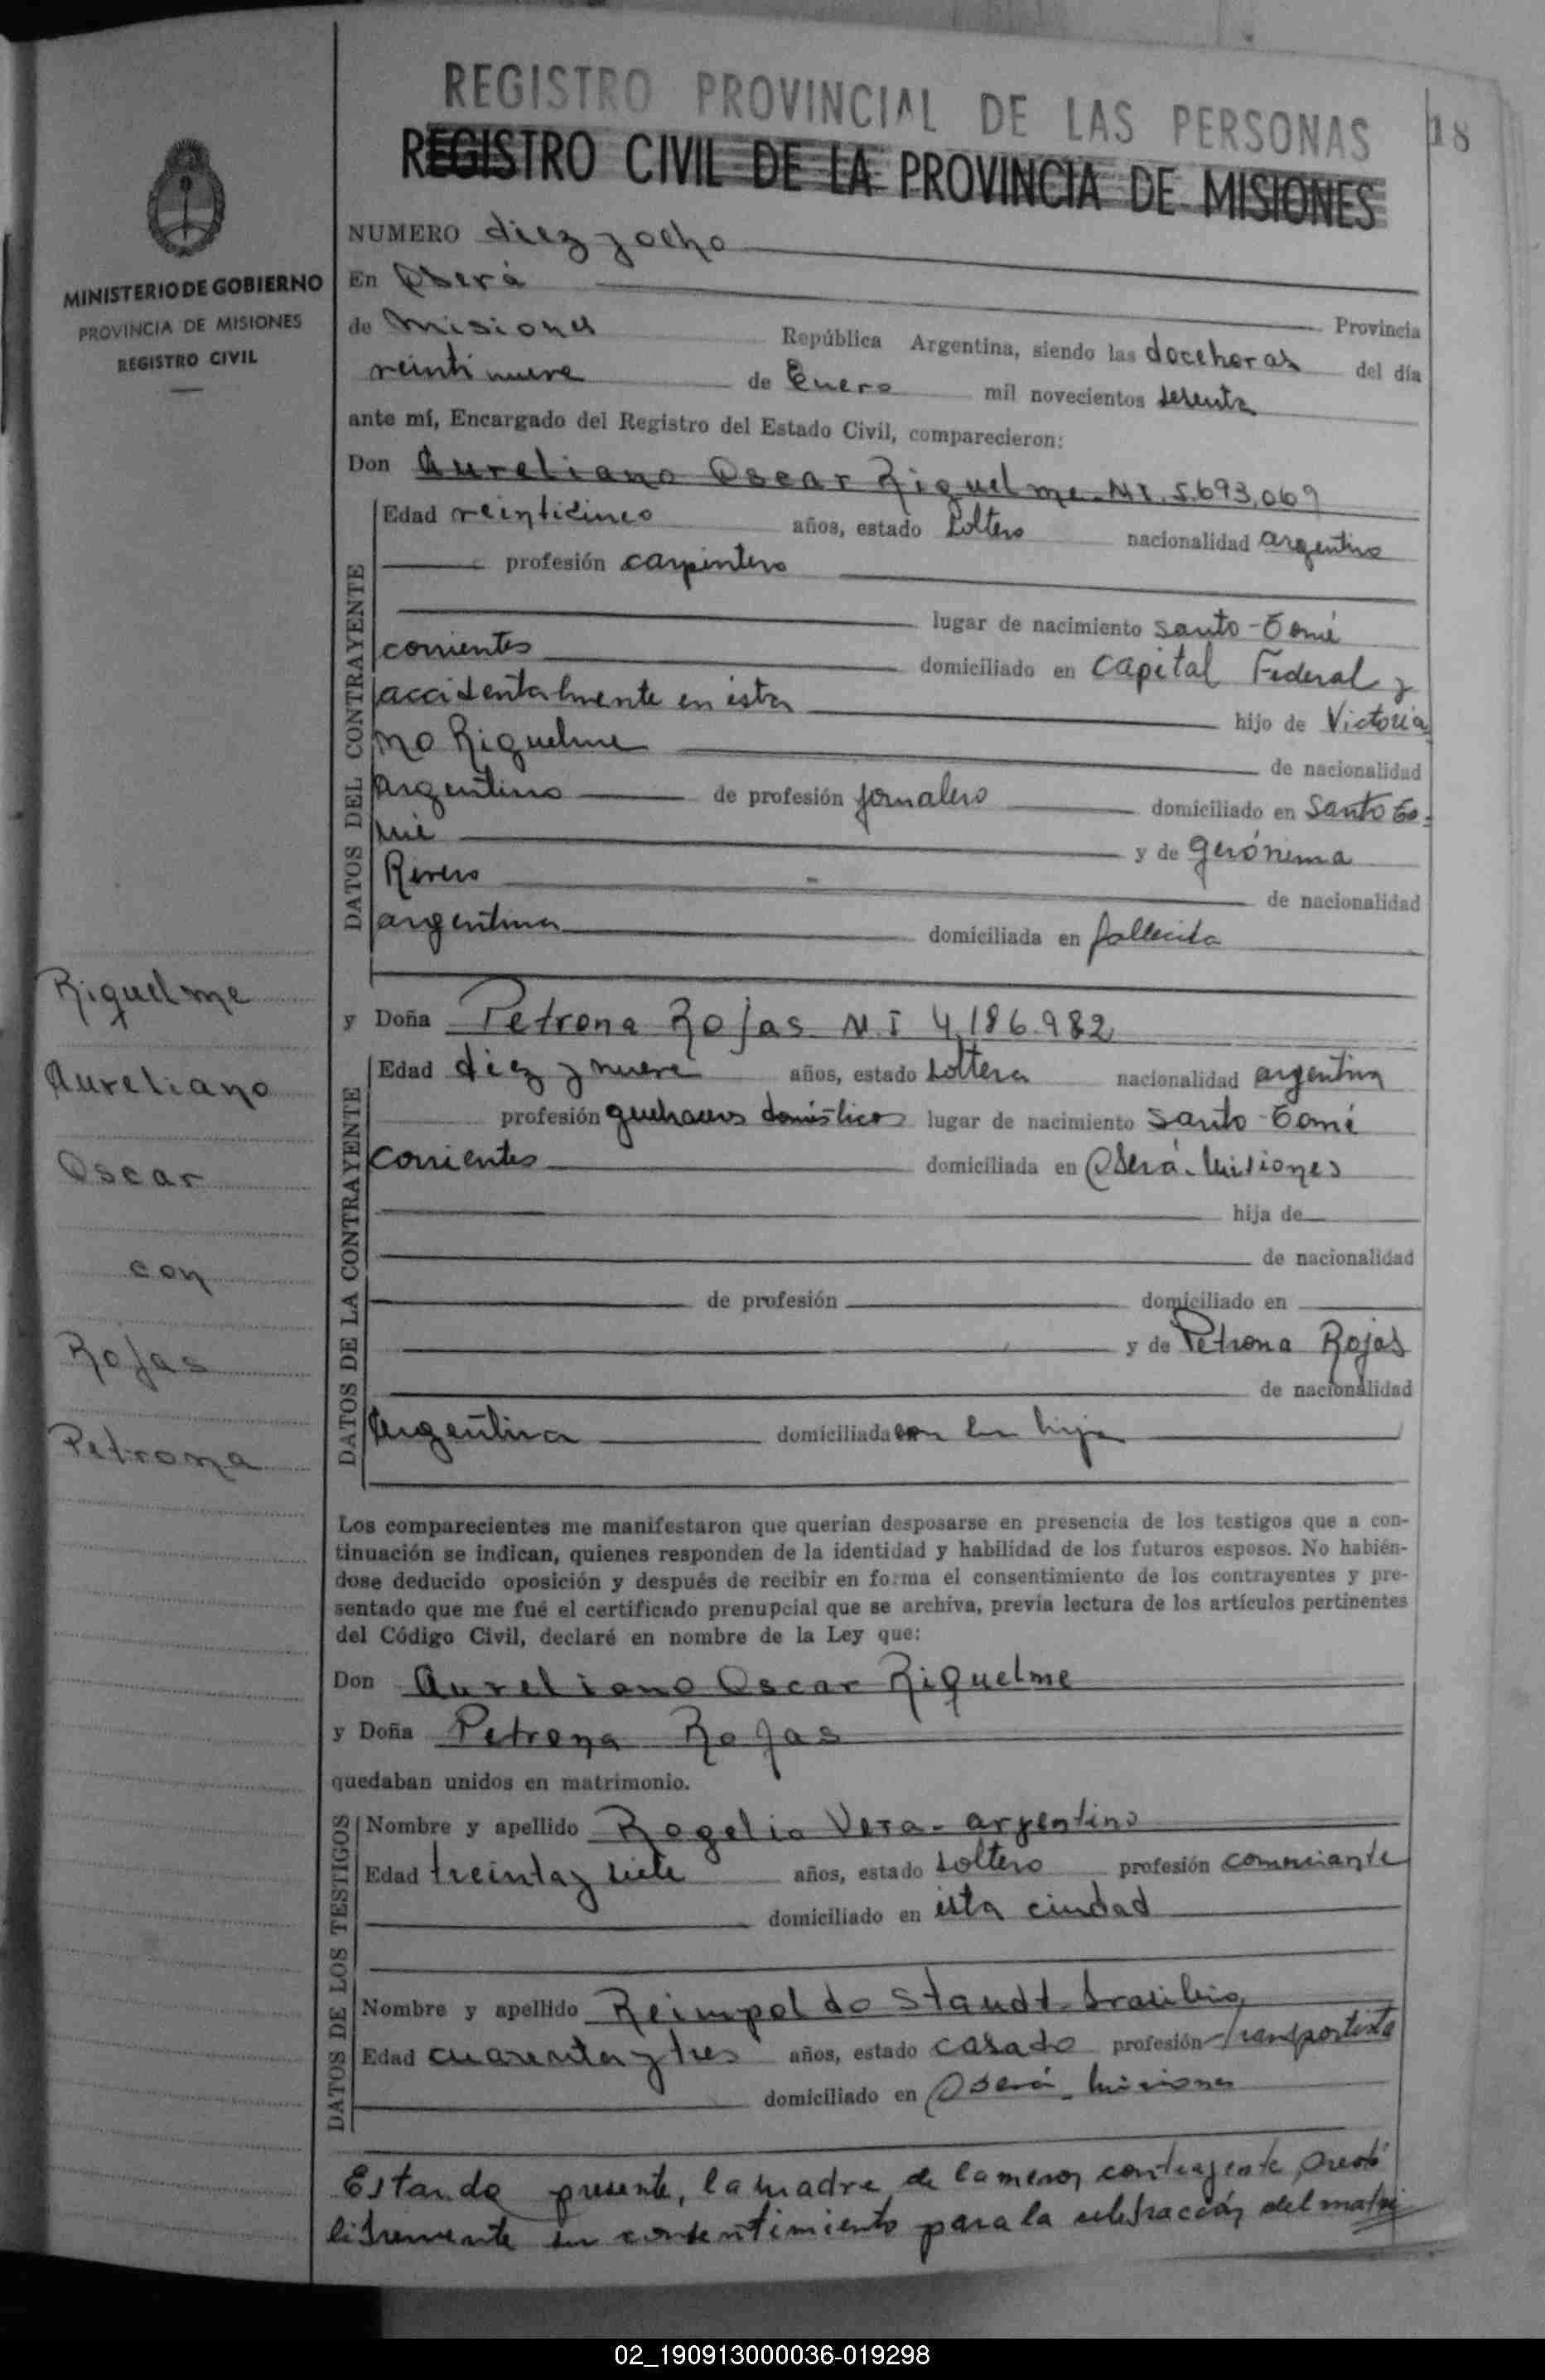 REGISTRO PROVINCIAL DE LAS PERSONAS
18
REGISTRO CIVIL DE LA PROVINCIA DE MISIONES
MINISTERIO DE GOBIERNO
PROVINCIA DE MISIONES
REGISTRO CIVIL
NUMERO diez y ocho
En Oberá Provincia
de Misiones República Argentina, siendo las doce horas del día
veintinueve de Enero mil novecientos sesenta
ante mí, Encargado del Registro del Estado Civil, comparecieron:
Don Aureliano Oscar Riquelme - M.I. 5.693.069
DATOS DEL CONTRAYENTE
Edad veinticinco años, estado soltero nacionalidad argentino
profesión carpintero
lugar de nacimiento Santo-Tomé
Corrientes domiciliado en Capital Federal y
accidentalmente en ésta hijo de Victoria
no Riquelme de nacionalidad
Argentino de profesión jornalero domiciliado en Santo To-
mé y de Gerónima
Rivero de nacionalidad
argentina domiciliada en fallecida
y Doña Petrona Rojas M.I 4.186.982
DATOS DE LA CONTRAYENTE
Edad diez y nueve años, estado soltera nacionalidad argentina
profesión quehaceres domésticos lugar de nacimiento Santo-Tomé
Corrientes domiciliada en Oberá-Misiones
hija de
de nacionalidad
de profesión domiciliado en
y de Petrona Rojas
de nacionalidad
Argentina domiciliada con su hija
Riquelme
Aureliano
Oscar
con
Rojas
Petrona
Los comparecientes me manifestaron que querían desposarse en presencia de los testigos que a con-
tinuación se indican, quienes responden de la identidad y habilidad de los futuros esposos. No habién-
dose deducido oposición y después de recibir en forma el consentimiento de los contrayentes y pre-
sentado que me fué el certificado prenupcial que se archiva, previa lectura de los artículos pertinentes
del Código Civil, declaré en nombre de la Ley que:
Don Aureliano Oscar Riquelme
y Doña Petrona Rojas
quedaban unidos en matrimonio.
DATOS DE LOS TESTIGOS
Nombre y apellido Rogelio Vera - argentino
Edad treinta y siete años, estado soltero profesión comerciante
domiciliado en ésta ciudad
Nombre y apellido Reimpoldo Staudt-brasilero,
Edad cuarenta y tres años, estado casado profesión transportista
domiciliado en Oberá - Misiones
Estando presente, la madre de la menor contrayente, prestó
libremente su consentimiento para la celebración del matri
02_190913000036-019298